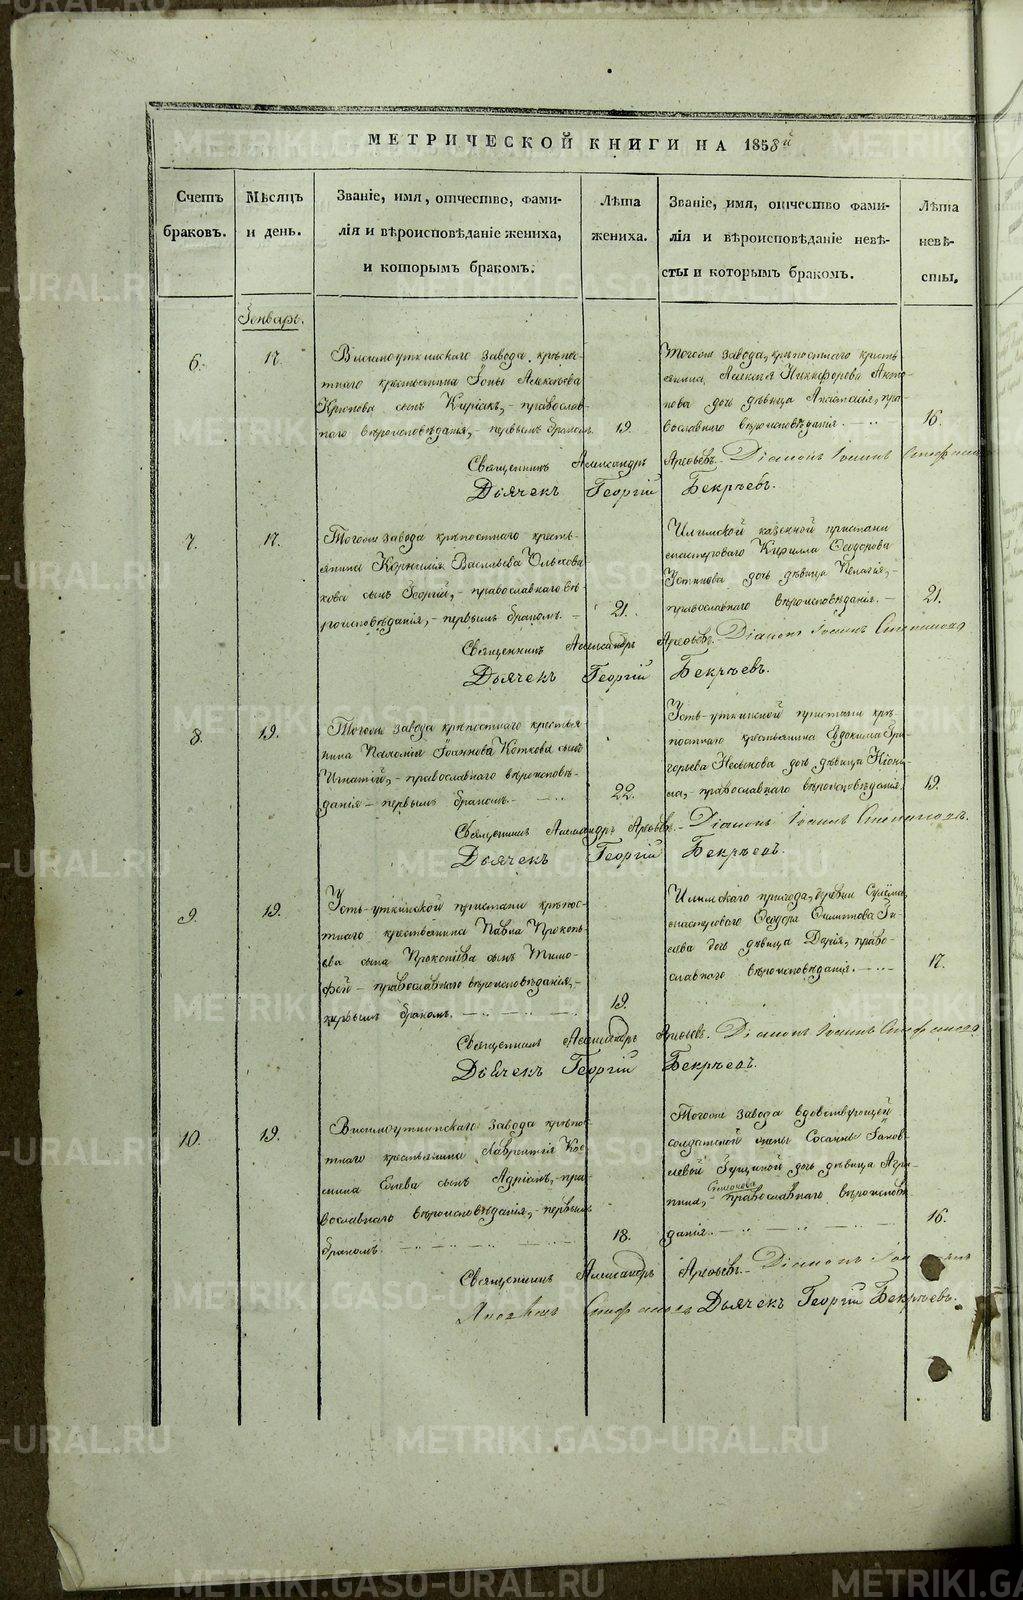 МЕТРИЧЕСКОЙ КНИГИ НА 1858й
Счетъ браковъ.
Мѣсяцъ и день.
Званіе, имя, отчество, фами-
лія и вѣроисповѣданіе жениха,
и которымъ бракомъ.
Лѣта жениха.
Званіе, имя, отчество фами-
лія и вѣроисповѣданіе невѣ-
сты и которымъ бракомъ.
Лѣта невѣ-
сты.
Генварь.
6.
17.
Висимоуткинскаго завода крѣпос-
тнаго крестьянина Іоны Алексѣева
сынъ Киріакъ,- православ-
наго вѣроисповѣданія,- первымъ бракомъ.
19.
Тогоже завода, крѣпостнаго кресть-
янина Алексѣя Никифорова Анто-
нова дочь дѣвица Анастасія, пра-
вославнаго вѣроисповѣданія.
16.
Священникъ Александръ Арефьевъ. Діаконъ Іоаннъ
Дьячекъ Георгій Бекрѣевъ.
7.
17.
Тогоже завода крѣпостнаго кресть-
янина Корнилія Васильева
сынъ Георгій,- православнаго вѣ-
роисповѣданія,- первымъ бракомъ.-
21.
Илимской казенной пристани
мастероваго Кирилла Ѳеодорова
Устинова дочь дѣвица Пелагія,-
православнаго вѣроисповѣданія.-
21.
Священникъ Александръ Арефьевъ. Діаконъ Іоаннъ
Дьячекъ Георгій Бекрѣевъ.
8.
19.
Тогоже завода крѣпостнаго крестья-
нина Пахомія Іоаннова Коткова сынъ
Игнатій,- православнаго вѣроисповѣ-
данія - первымъ бракомъ.-
22.
Усть-уткинской пристани крѣ-
постнаго крестьянина Евдокима Гри-
горьева дочь дѣвица Ніони-
ла,- православнаго вѣроисповѣданія.
19.
Священникъ Александръ Арефьевъ. Діаконъ Іоаннъ
Дьячекъ Георгій Бекрѣевъ.
9.
19.
Усть-уткинской пристани крѣпос-
тнаго крестьянина Павла Прокопь-
ева сына Прокопьева сынъ Тимо-
фей - православнаго вѣроисповѣданія,-
первымъ бракомъ.
19.
Илимскаго прихода, деревни Сулёма,
мастероваго Ѳеодора
дочь дѣвица Дарія, право-
славнаго вѣроисповѣданія.
17.
Священникъ Александръ Арефьевъ. Діаконъ Іоаннъ
Дьячекъ Георгій Бекрѣевъ.
10.
19.
Висимоуткинскаго завода крѣпос-
тнаго крестьянина Лаврентія Кос-
мина Елева сынъ Адріанъ,- пра-
вославнаго вѣроисповѣданія,- первымъ
бракомъ.
18.
Тогоже завода вдовствующей
солдатской жены Сосанны Іаков-
левой дочь дѣвица Агри-
пина, - православнаго вѣроисповѣ-
данія.
16.
Священникъ Александръ Арефьевъ. Діаконъ
Дьячекъ Георгій Бекрѣевъ.
METRIKI.GASO-URAL.RU